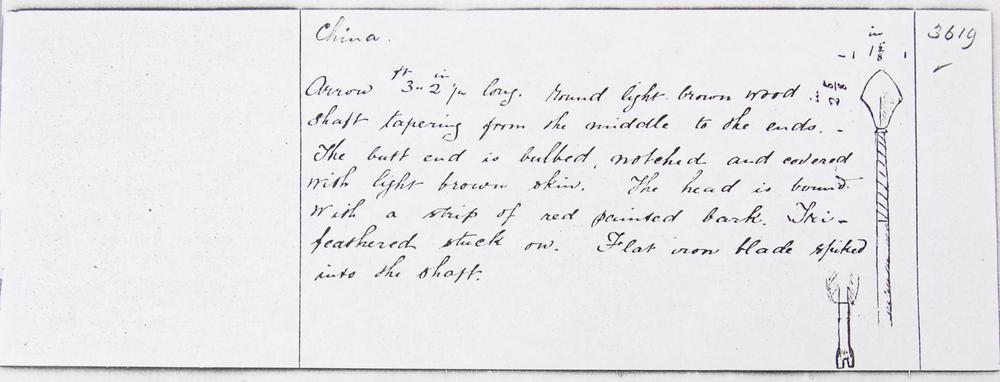 China.
3619
in
1 1/8
Arrow 3 ft 2 in long. Round light brown wood
shaft tapering from the middle to the ends. -
The butt end is bulbed, notched and covered
with light brown skin. The head is bound
with a strip of red painted bark. Tri-
feathered stuck on. Flat iron blade spiked
into the shaft.